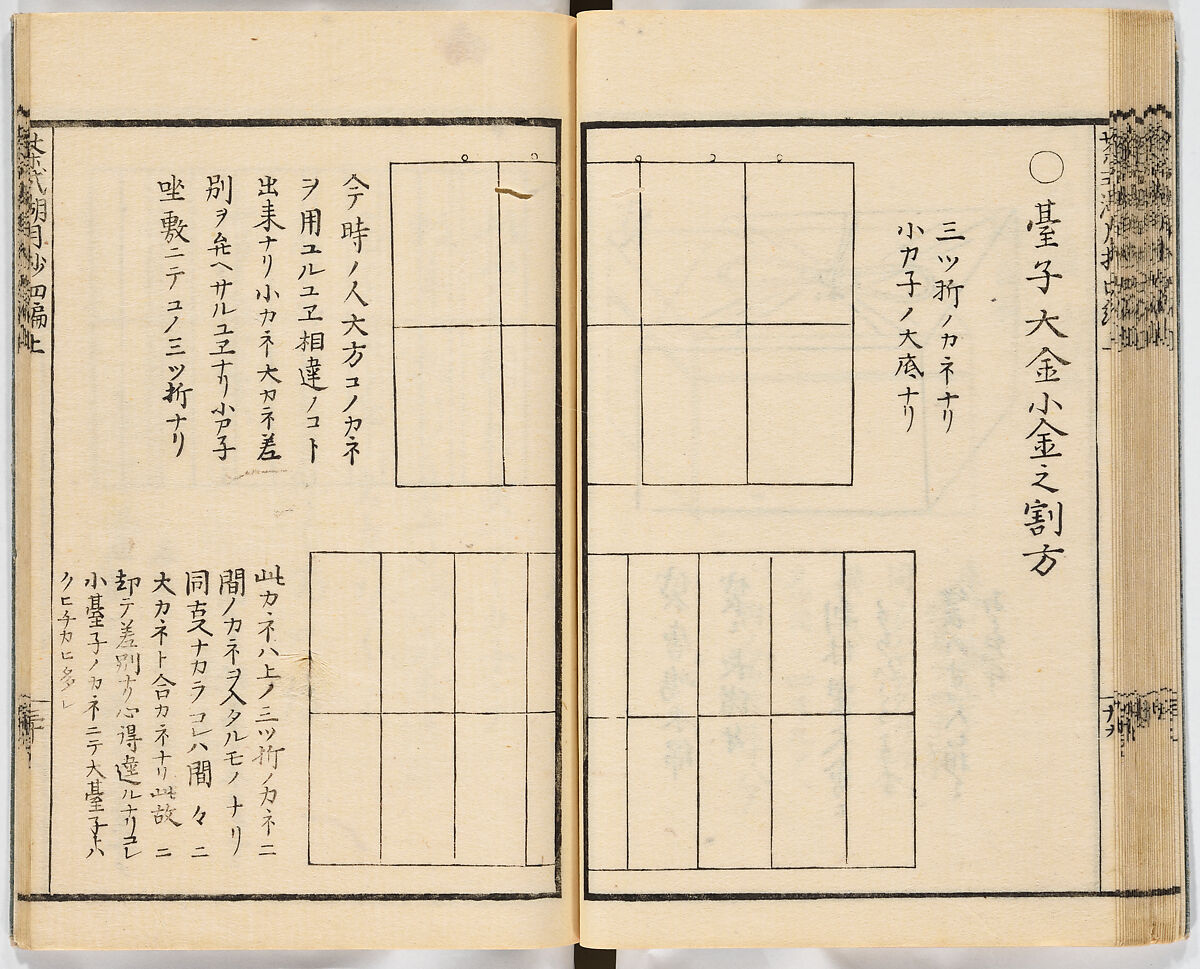 〇臺子大金小金之割方
三ツ折ノカネナリ
小カ子ノ大底ナリ
今時ノ人大方コノカネ
ヲ用ユルユヱ相違ノコト
出来ナリ小カネ大カネ差
別ヲ弁ヘサルユヱナリ小カ子
坐敷ニテコノ三ツ折ナリ
此カネハ上ノ三ツ折ノカネニ
間ノカネヲ入タルモノナリ
同吉スナカラコレハ間々ニ
大カネト合カネナリ此故ニ
却テ差別ナク心得違ルナリコレ
小臺子ノカネニテ大臺子ハ
ノヒチカヒ多シ
茶式湖月抄四編上